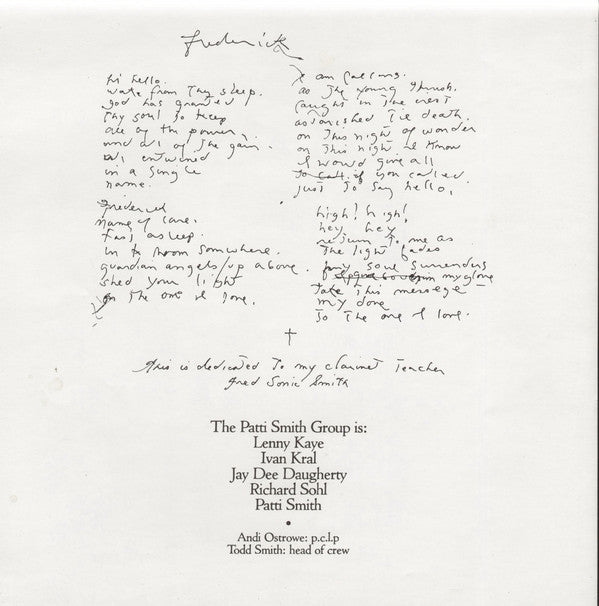 frederick
hi hello.
wake from thy sleep.
god has granted
thy soul to keep
all of the power,
and all of the gain.
all entwined
in a single
name.
Frederick
name of care.
fast asleep.
in a room somewhere.
guardian angels/up above.
shed your light
on the one I love.
I am calling.
as the young thrush.
caught in the crest
astonished til death.
on this night of wonder
on this night I know
I would give all
if you called.
just to say hello.
high! high!
hey hey
return to me as
the light fades
my soul surrenders
upon my glove
take this message
my dove
to the one I love.
†
this is dedicated to my clarinet teacher
fred Sonic Smith
The Patti Smith Group is:
Lenny Kaye
Ivan Kral
Jay Dee Daugherty
Richard Sohl
Patti Smith
•
Andi Ostrowe: p.c.l.p
Todd Smith: head of crew